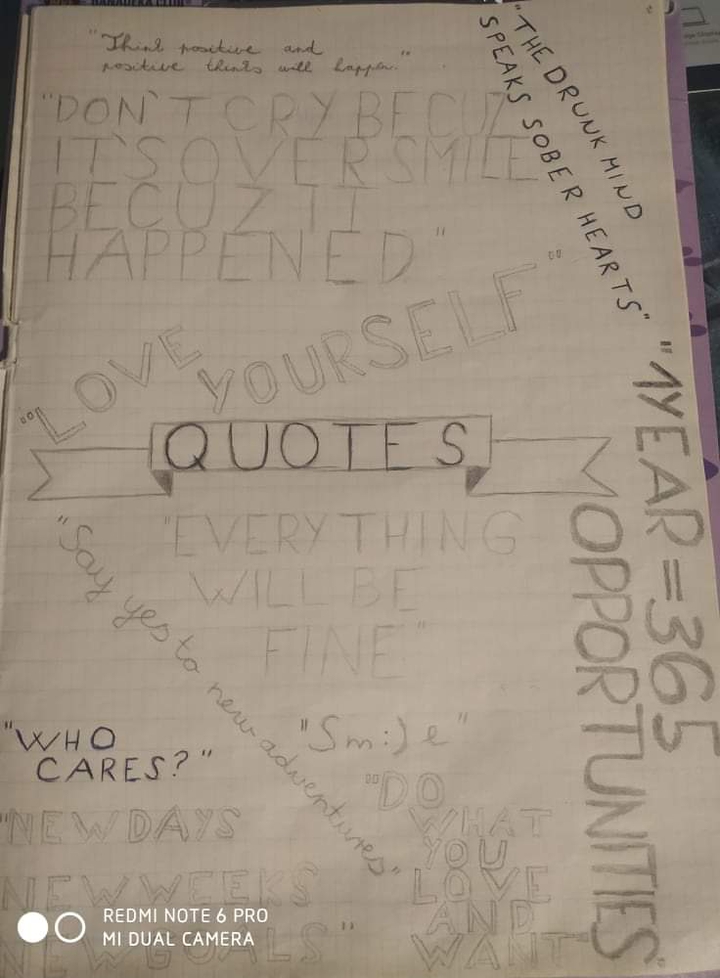 "Think positive and
positive thinks will happen."
"DON'T CRY BECUZ
IT'S OVER SMILE
BECUZ TI
HAPPENED"
"THE DRUNK MIND
SPEAKS SOBER HEARTS"
"LOVE
YOURSELF"
"1YEAR = 365
OPPORTUNITIES"
QUOTES
"EVERYTHING
WILL BE
FINE"
"Say yes to new adventures"
"Sm:)e"
"WHO
CARES?"
"DO
WHAT
YOU
LOVE
AND
WANT"
"NEW DAYS
NEW WEEKS
NEW GOALS"
REDMI NOTE 6 PRO
MI DUAL CAMERA